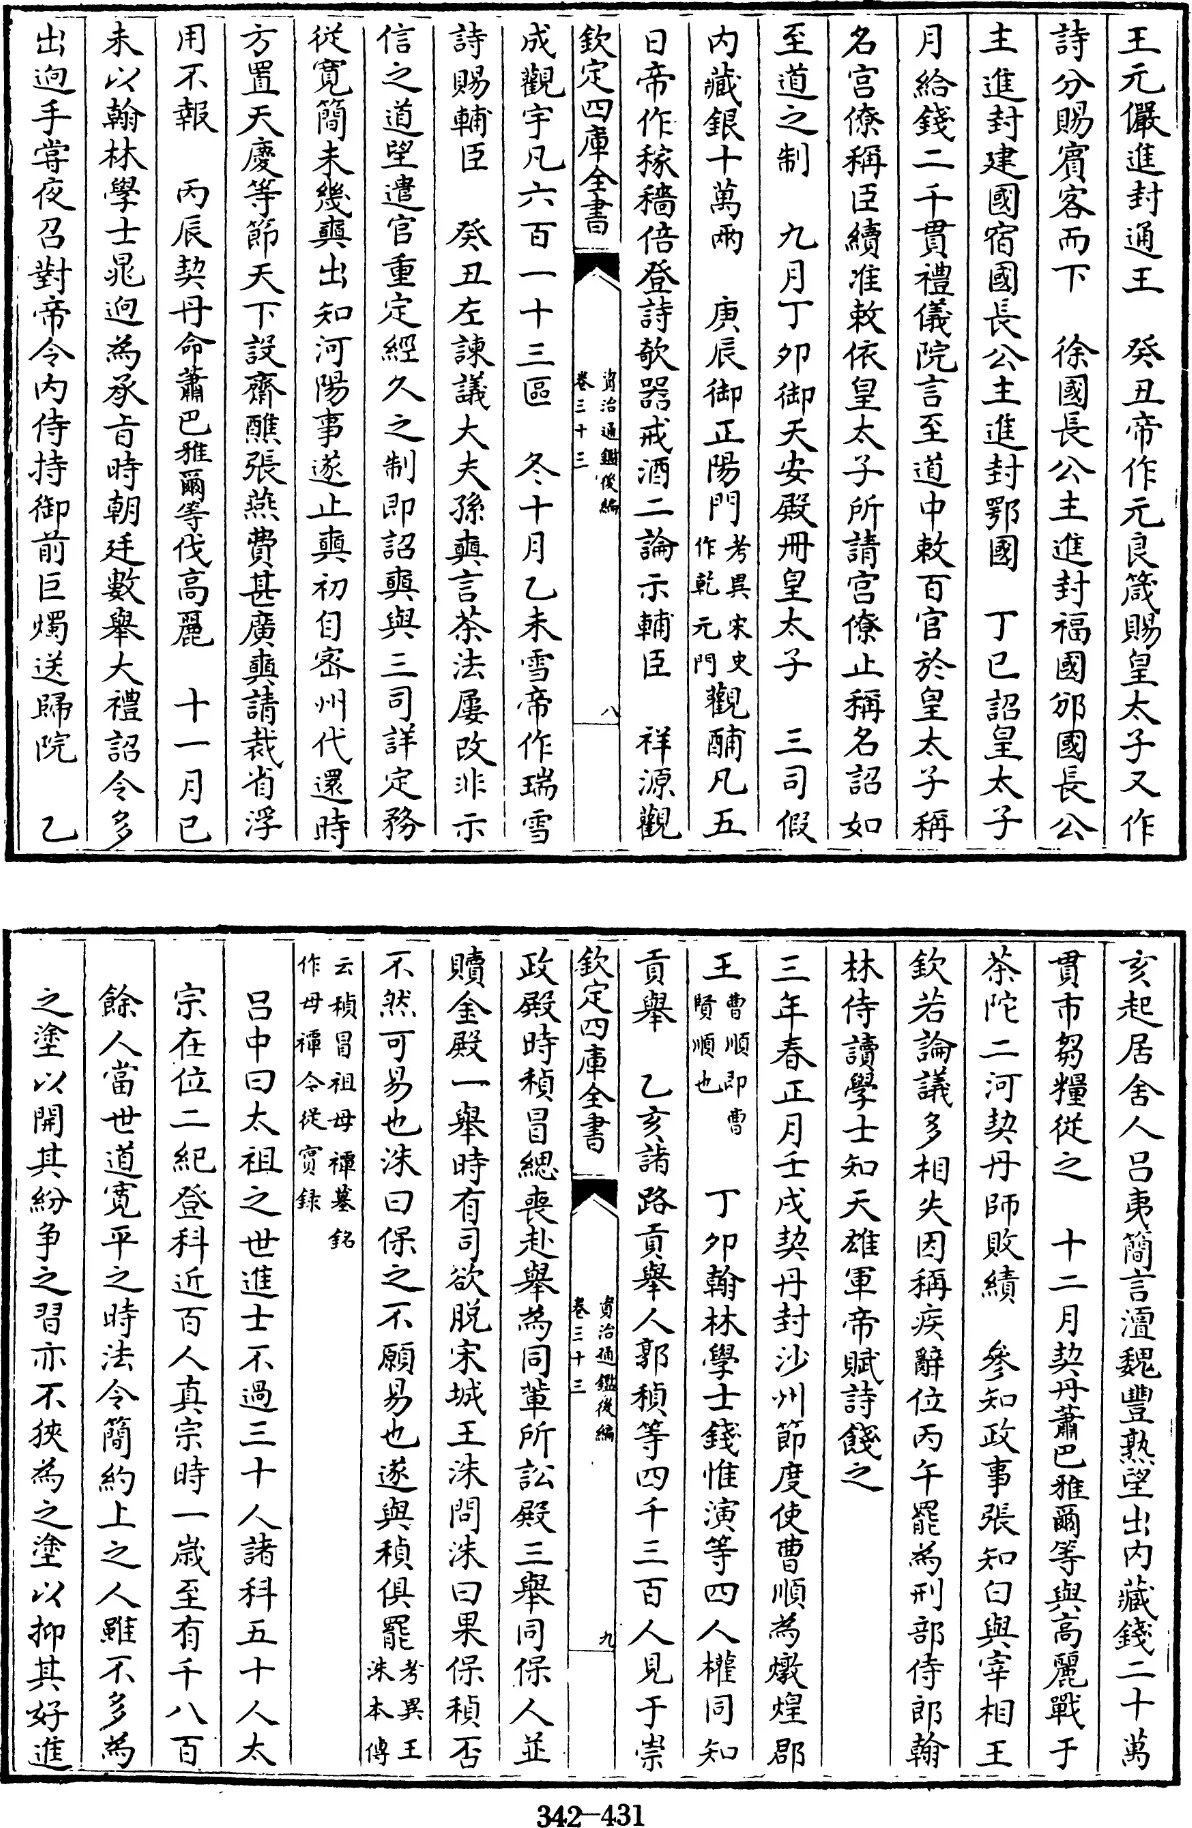 王元儼進封通王　癸丑帝作元良箴賜皇太子又作
詩分賜賓客而下　徐國長公主進封福國邠國長公
主進封建國宿國長公主進封鄂國　丁巳詔皇太子
月給錢二千貫禮儀院言至道中敕百官於皇太子稱
名宫僚稱臣續准敕依皇太子所請宫僚止稱名詔如
至道之制　九月丁卯御天安殿冊皇太子　三司假
内藏銀十萬兩　庚辰御正陽門考異宋史作乾元門觀酺凡五
日帝作稼穡倍登詩欹器戒酒二論示輔臣　祥源觀
欽定四庫全書　資治通鑑後編　卷三十三　八
成觀宇凡六百一十三區　冬十月乙未雪帝作瑞雪
詩賜輔臣　癸丑左諫議大夫孫奭言茶法屢改非示
信之道望遣官重定經久之制即詔奭與三司詳定務
從寛簡未幾奭出知河陽事遂止奭初自宻州代還時
方置天慶等節天下設齋醮張燕費甚廣奭請裁省浮
用不報　丙辰契丹命蕭巴雅爾等伐高麗　十一月己
未以翰林學士晁迥為承旨時朝廷數舉大禮詔令多
出迥手嘗夜召對帝令内侍持御前巨燭送歸院　乙
亥起居舍人吕夷簡言澶魏豐熟望出内藏錢二十萬
貫市芻糧從之　十二月契丹蕭巴雅爾等與高麗戰于
茶陀二河契丹師敗績　參知政事張知白與宰相王
欽若論議多相失因稱疾辭位丙午罷為刑部侍郎翰
林侍讀學士知天雄軍帝賦詩餞之
三年春正月壬戌契丹封沙州節度使曹順為燉煌郡
王曹順即曹賢順也　丁卯翰林學士錢惟演等四人權同知
貢舉　乙亥諸路貢舉人郭稹等四千三百人見于崇
欽定四庫全書　資治通鑑後編　卷三十三　九
政殿時稹冒緦喪赴舉為同輩所訟殿三舉同保人並
贖金殿一舉時有司欲脱宋城王洙問洙曰果保稹否
不然可易也洙曰保之不願易也遂與稹俱罷考異王洙本傳
云稹冒祖母禫墓銘作母禫令從實録
吕中曰太祖之世進士不過三十人諸科五十人太
宗在位二紀登科近百人真宗時一歳至有千八百
餘人當世道寛平之時法令簡約上之人雖不多為
之塗以開其紛爭之習亦不狹為之塗以抑其好進
342-431